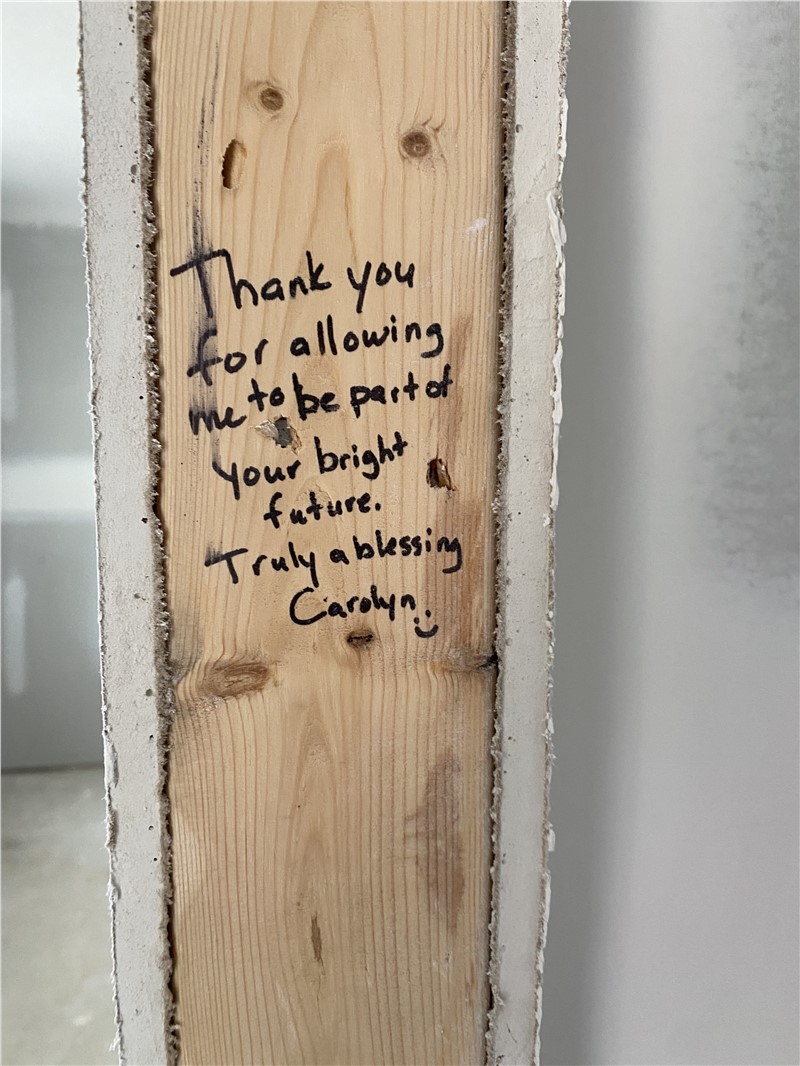 Thank you
for allowing
me to be part of
your bright
future.
Truly a blessing
Carolyn